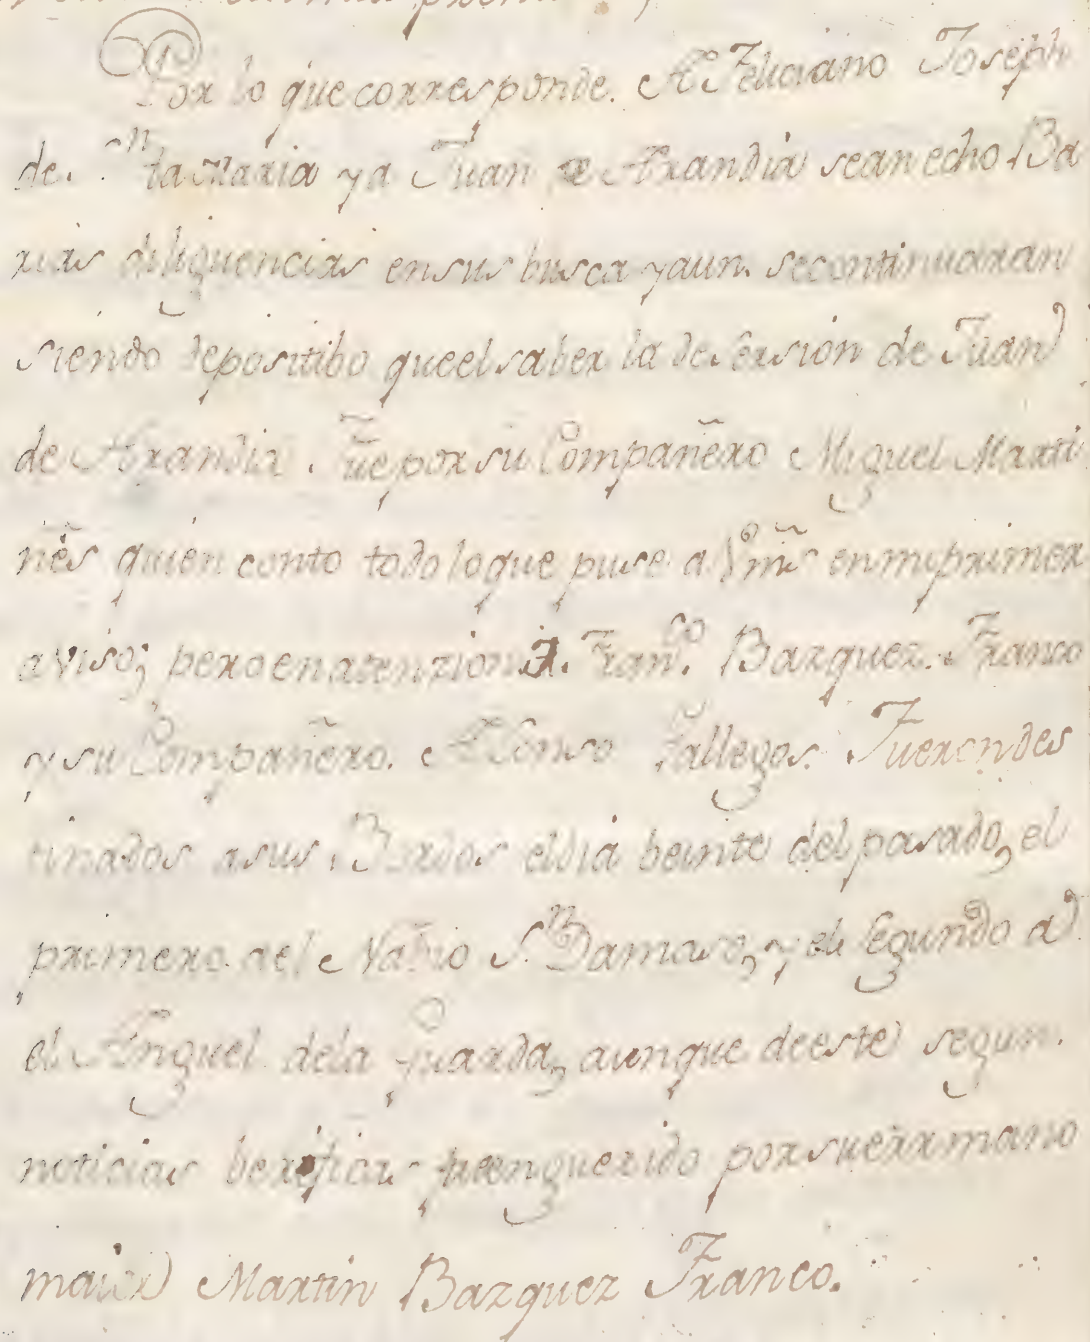 Por lo que corresponde. A Feliciano Joseph
de. Sn ta Maria y a Juan de Arandia sean echo Ba
rias diliguencias ensus busca y aun. secontinuaran
siendo depositibo queel saber la desersion de Juan
de Arandia. Fue por su Compañero Miguel Marti
nes quien conto todo loque puse a Vms en mi primer
aviso; pero en atenzion a. Franco. Bazquez. Franco
y su Compañero. Alonso Gallegos. Fueron des
tinados asus Bordos eldia beinte del pasado, el
primero ael Nabio Sn Damaso, y el segundo a
el Anguel dela Guarda, aunque deeste segun.
noticias berificas fueenguerido porsuerrmano
maior Martin Bazquez Franco.